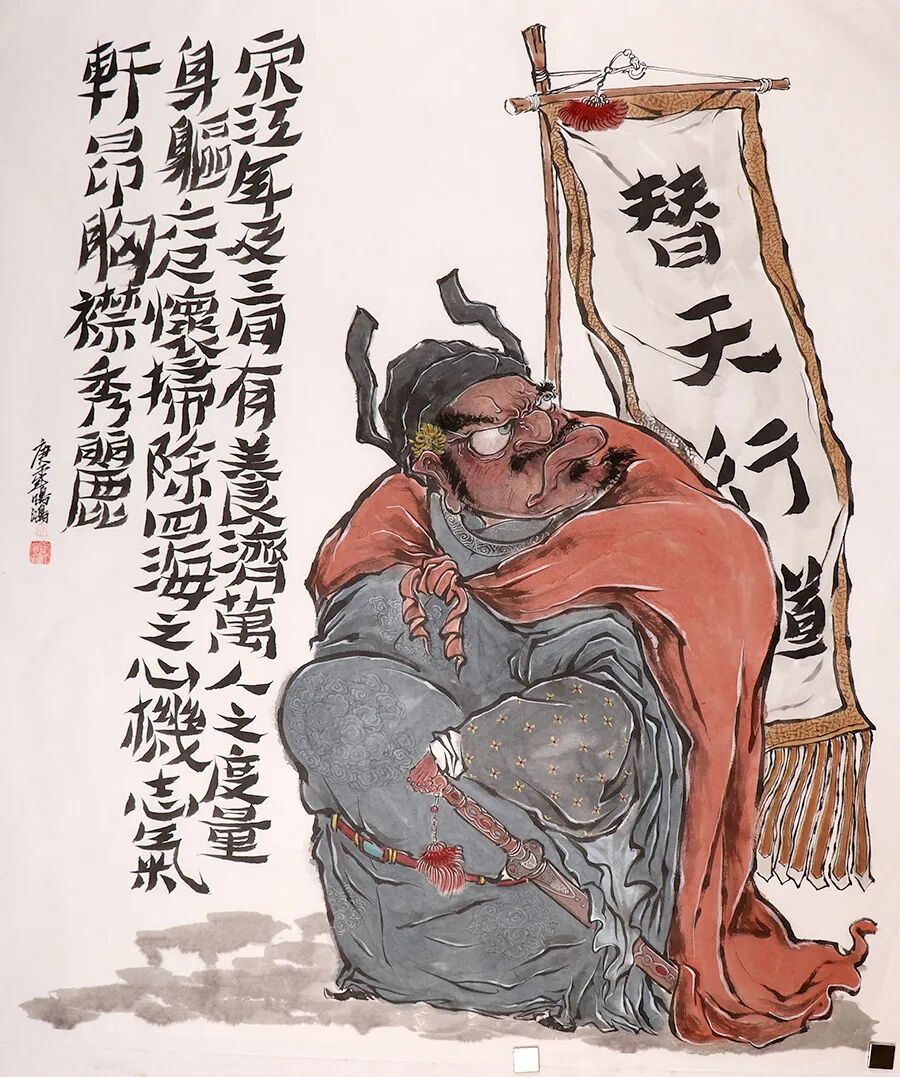 替天行道
宋江年及三旬有養濟萬人之度量
身軀六尺懷掃除四海之心機志氣
軒昂胸襟秀麗